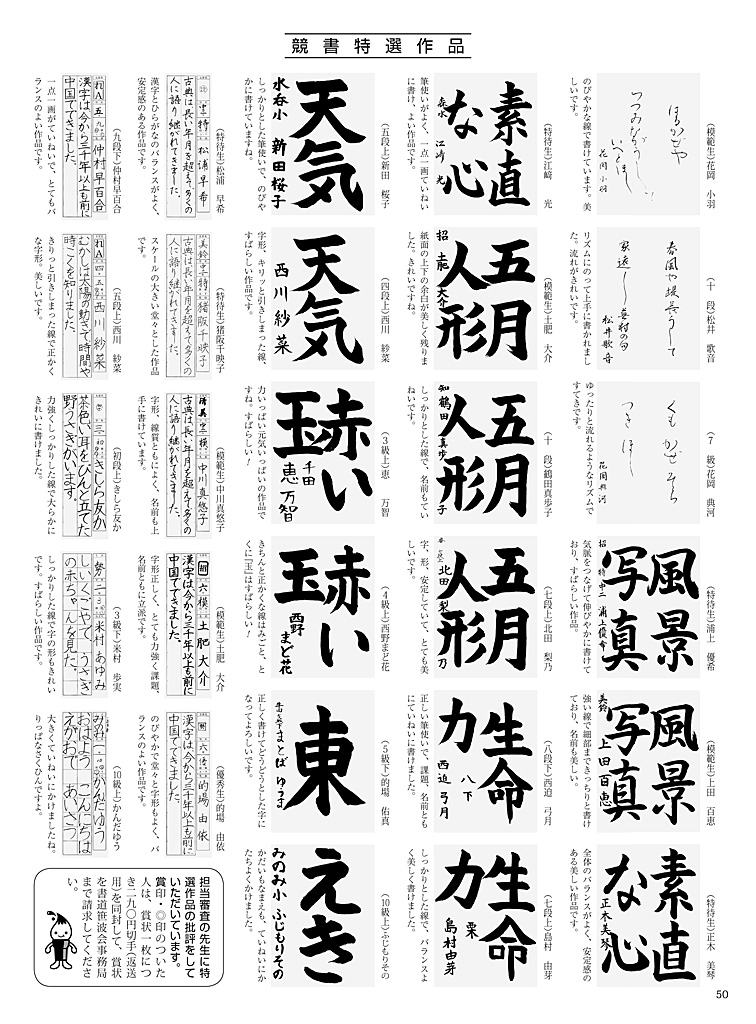 競書特選作品
(模範生)花岡 小羽
ほしかぜや
つつみながうし
いへとほし
花岡小羽
のびやかな線で書けています。美
しいです。
(十 段)松井 歌音
春風や堤長うして
家遠し 蕪村の句
松井歌音
リズムにのって上手に書かれまし
た。流れがきれいです。
(7 級)花岡 典河
くも かぜ そら
つき ほし
花岡典河
ゆったりと流れるようなリズムで
すてきです。
(特待生)浦上 優希
風景
写真
招 特 中二 浦上優希
気脈をつなげて伸びやかに書けて
おり、すばらしい作品。
(模範生)上田 百恵
風景
写真
美鈴 上田百恵
強い線で、細部まできっちりと書け
ており、名前も美しい。
(特待生)正木 美琴
素直
な心
正木美琴
全体のバランスがよく、安定感の
ある美しい作品です。
(特待生)江﨑 光
素直
な心
江﨑 光
筆使いがよく、一点一画ていねい
に書け、よい作品です。
(模範生)土肥 大介
五月
人形
招 土肥 大介
紙面の上下の余白が美しく残りま
した。きれいですね。
(十 段)鶴田真歩子
五月
人形
知 鶴田真歩子
しっかりとした線で、名前もてい
ねいです。
(七段上)北田 梨乃
五月
人形
北田 梨乃
字、形、安定していて、とても美
しいです。
(八段下)西迫 弓月
生命
力
八下
西迫 弓月
正しい筆使いで、課題、名前とも
にていねいに書けました。
(七段上)島村 由芽
生命
力
栗
島村由芽
しっかりとした線で、バランスよ
く美しく書けました。
(五段上)新田 桜子
天気
水呑小 新田桜子
しっかりとした筆使いで、のびや
かに書けていますね。
(四段上)西川 紗菜
天気
西川紗菜
字形、キリッと引きしまった線、
すばらしい作品です。
(3級上)恵 万智
赤い
玉
千田
恵 万智
力いっぱい元気いっぱいの作品で
すね。すばらしい!
(4級上)西野まど花
赤い
玉
西野
まど花
きちんと正かくな線はみごと、と
くに「玉」はすばらしい!
(5級下)的場 佑真
東
まとば ゆうま
正しく書けてどうどうとした字に
なってよろしいです。
(10級上)ふじもりその
えき
みのみ小 ふじもりその
かだいもなまえも、ていねいにか
たちよくかけました。
(特待生)松浦 早希
中三 特 松浦早希
古典は長い年月を超えて多くの
人に語り継がれてきました。
漢字とひらがなのバランスがよく、
安定感のある作品です。
(特待生)猪阪千映子
美鈴 中三 特 猪阪千映子
古典は長い年月を超えて多くの
人に語り継がれてきました。
スケールの大きい堂々とした作品
です。
(模範生)中川真悠子
清美 中三 模 中川真悠子
古典は長い年月を超えて多くの
人に語り継がれてきました。
字形、線質ともによく、名前も上
手に書けています。
(模範生)土肥 大介
招 六 模 土肥 大介
漢字は今から三千年以上も前に
中国でできました。
字形正しく、とても力強く課題、
名前ともに立派です。
(優秀生)的場 由依
六 優 的場 由依
漢字は今から三千年以上も前に
中国でできました。
のびやかで堂々と字形もよく、バ
ランスのよい作品です。
(九段下)仲村早百合
れA 五 九段下 仲村早百合
漢字は今から三千年以上も前に
中国でできました。
一点一画がていねいで、とてもバ
ランスのよい作品です。
(五段下)西川 紗菜
れA 四 五下 西川紗菜
むかしは太陽の動きで、時間や
時こくを知りました。
きりっと引きしまった線で正かく
な字形。美しいです。
(初段上)きしら友か
三 初上 きしら友か
茶色い耳をぴんと立てた
野うさぎがいます。
力強くしっかりした線で大らかに
きれいに書けました。
(3級下)米村 歩実
勢 二 三下 米村 あゆみ
しいくごやで、うさぎ
の赤ちゃんを見た。
しっかりした線で字の形もきれい
です。すばらしい作品です。
(10級上)かんだゆう
みのみ 一 10上 かんだゆう
おはよう こんにちは
えがおで あいさつ
大きくていねいにかけましたね。
りっぱなさくひんですよ。
担当審査の先生に特
選作品の批評をして
いただいています。
賞印・◎印のついた
人は、賞状一枚につ
き二九〇円切手(返送
用)を同封して、賞状
を書道笹波会事務局
まで請求してくださ
い。
50